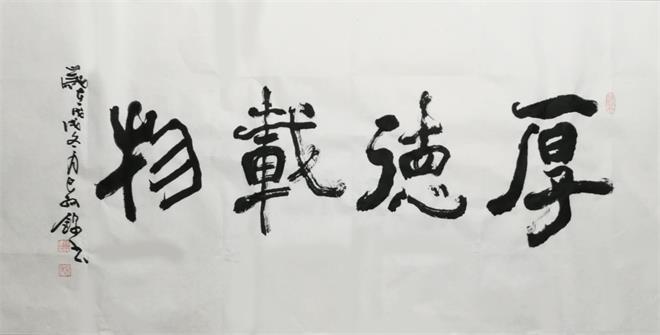 厚德載物
歲在戊戌冬月
書